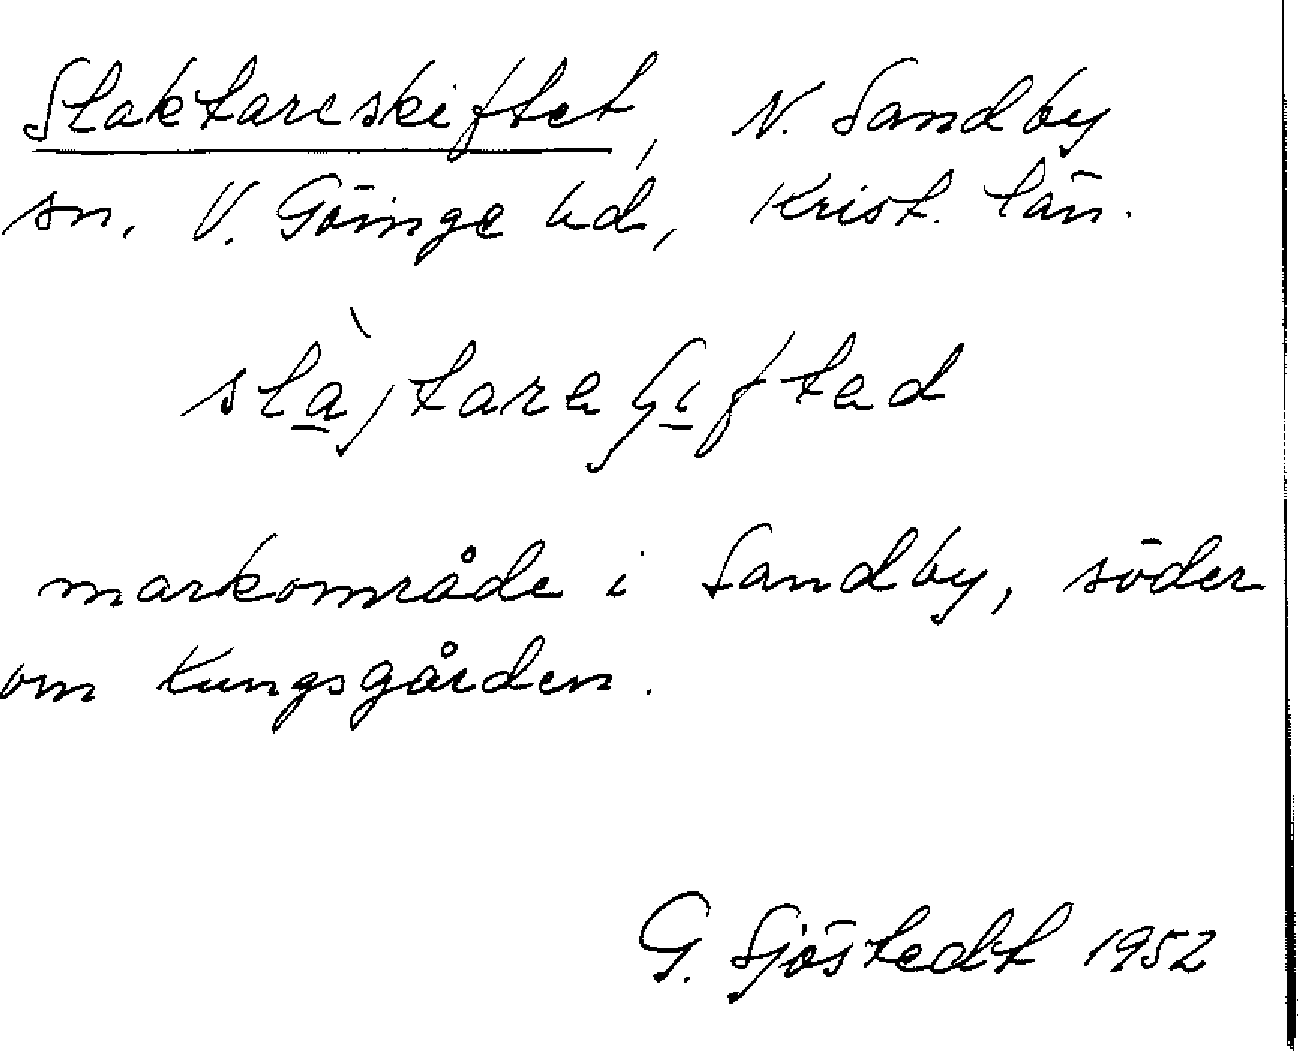 Slaktareskiftet, N. Sandby
sn. V. Göinge hd, Krist. län.
markområde i Sandby, söder
om Kungsgården.
G. Sjöstedt 1952